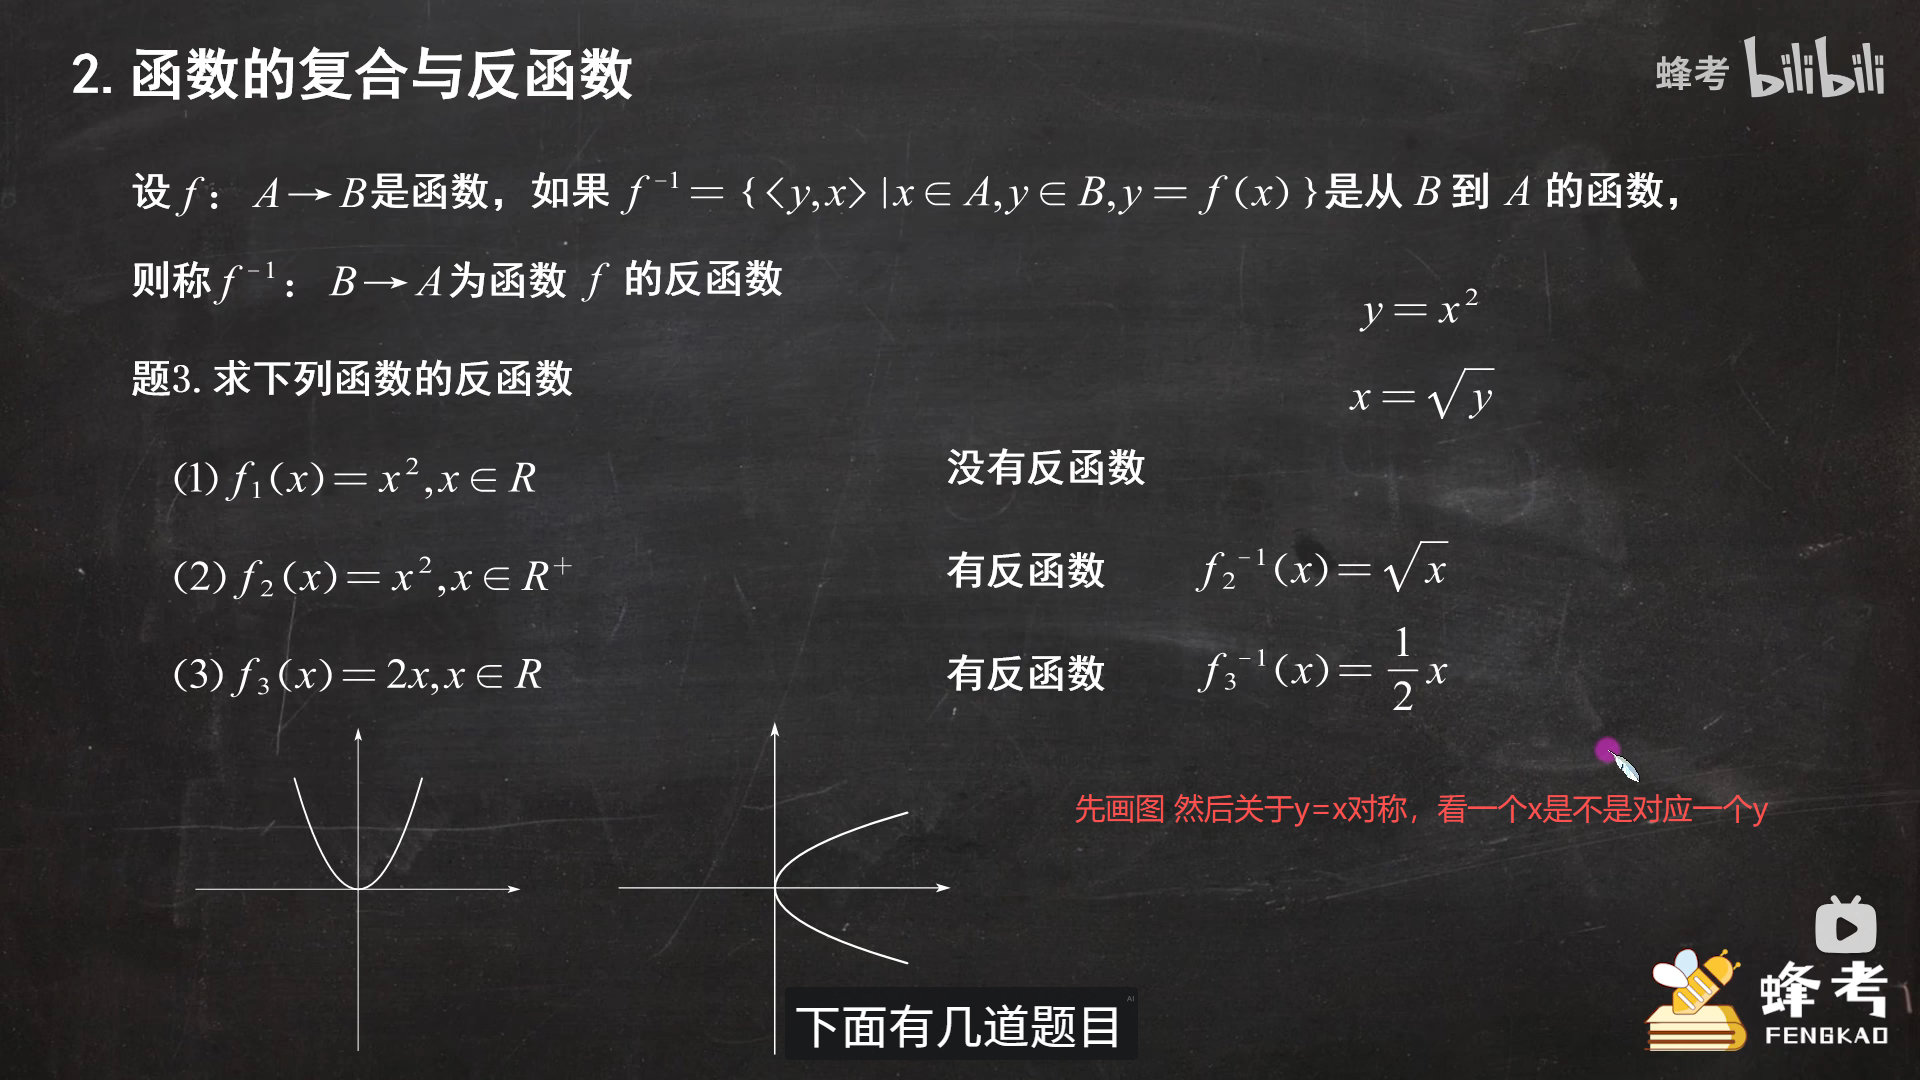 2. 函数的复合与反函数
蜂考 bilibili
设 f： A→B是函数，如果 f⁻¹＝{<y,x>|x∈A,y∈B,y＝f(x)}是从 B 到 A 的函数，
则称 f⁻¹： B→A为函数 f 的反函数
y＝x²
题3. 求下列函数的反函数
x＝√y
(1) f₁(x)＝x²,x∈R
没有反函数
(2) f₂(x)＝x²,x∈R⁺
有反函数 f₂⁻¹(x)＝√x
(3) f₃(x)＝2x,x∈R
有反函数 f₃⁻¹(x)＝1/2 x
先画图 然后关于y=x对称，看一个x是不是对应一个y
下面有几道题目
AI
蜂考
FENGKAO